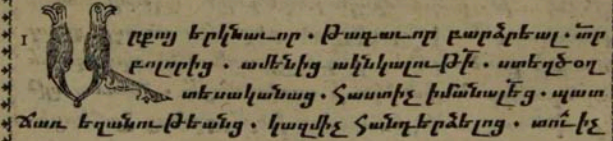 1 Արքոյ երկնաւոր . Թագաւոր բարձրեալ . տ՟ր
բոլորից . ամենից ակնկալութի՟ . ստեղծօղ
տեսականաց . հաստիչ իմանալե՟ց . պատ
ճառ եղանութեանց . կազմիչ հանդերձելոց . տու՟իչ